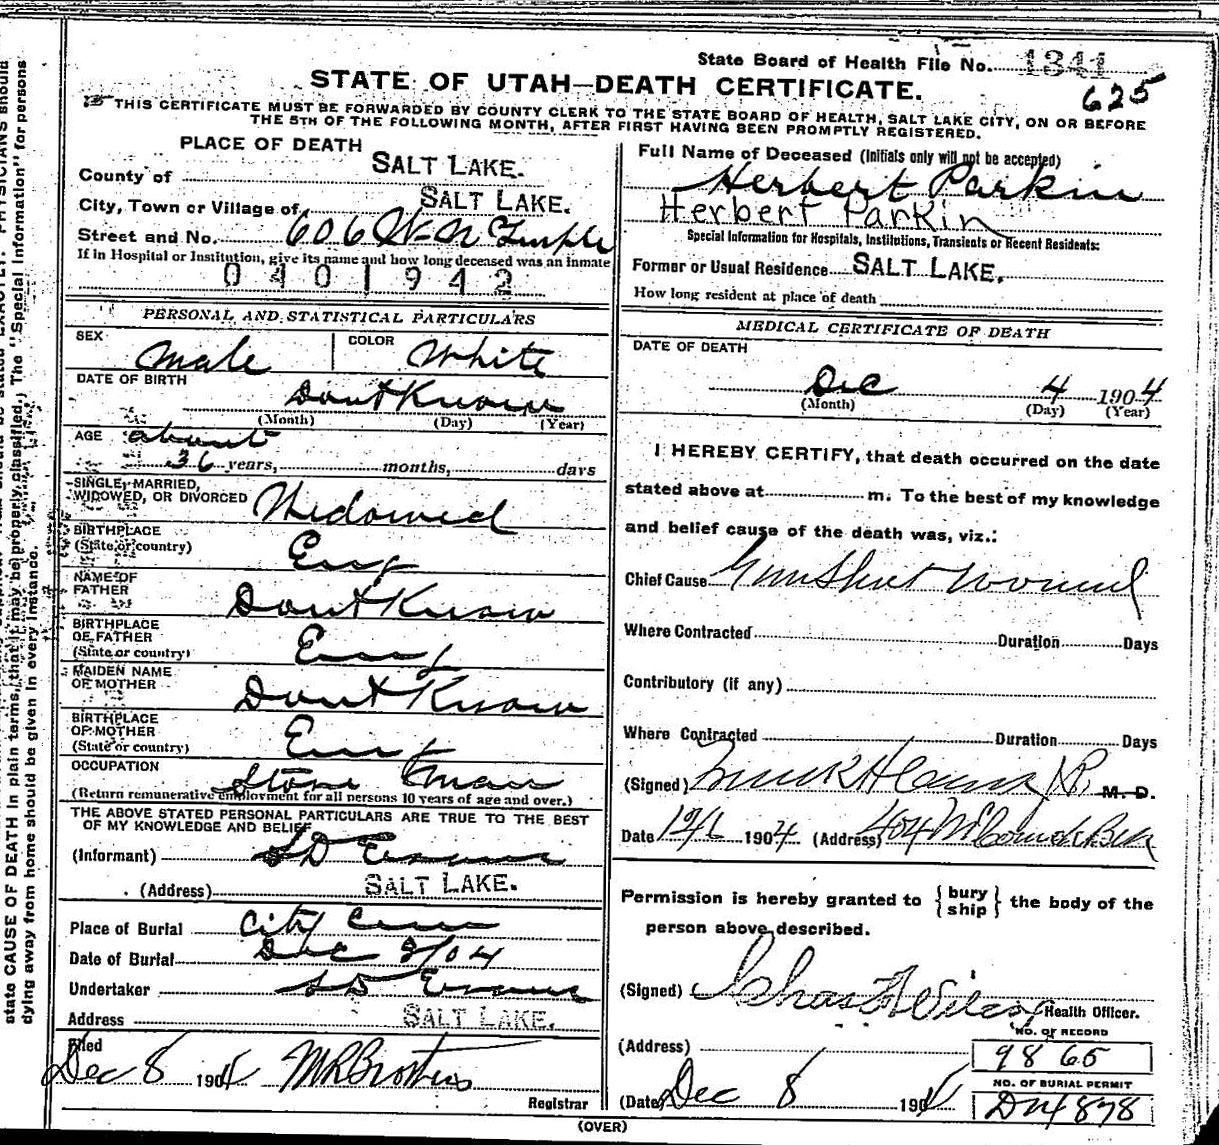 State Board of Health File No. 1341
625
STATE OF UTAH—DEATH CERTIFICATE.
THIS CERTIFICATE MUST BE FORWARDED BY COUNTY CLERK TO THE STATE BOARD OF HEALTH, SALT LAKE CITY, ON OR BEFORE
THE 5TH OF THE FOLLOWING MONTH, AFTER FIRST HAVING BEEN PROMPTLY REGISTERED.
PLACE OF DEATH
County of SALT LAKE.
City, Town or Village of SALT LAKE.
Street and No. 606 W N Temple
If in Hospital or Institution, give its name and how long deceased was an inmate
0401942
PERSONAL AND STATISTICAL PARTICULARS
SEX Male COLOR White
DATE OF BIRTH Dont Know
(Month) (Day) (Year)
AGE about
36 years, months, days
SINGLE, MARRIED,
WIDOWED, OR DIVORCED Widowed
BIRTHPLACE
(State or country) Eng
NAME OF
FATHER Dont Know
BIRTHPLACE
OF FATHER
(State or country) Eng
MAIDEN NAME
OF MOTHER Dont Know
BIRTHPLACE
OF MOTHER
(State or country) Eng
OCCUPATION Stone Man
(Return remunerative employment for all persons 10 years of age and over.)
THE ABOVE STATED PERSONAL PARTICULARS ARE TRUE TO THE BEST
OF MY KNOWLEDGE AND BELIEF
(Informant) S D Evans
(Address) SALT LAKE.
Place of Burial City Cem
Date of Burial Dec 8/04
Undertaker S D Evans
Address SALT LAKE.
Filed
Dec 8 1904
Registrar
Full Name of Deceased (Initials only will not be accepted)
Herbert Parkin
Herbert Parkin
Special Information for Hospitals, Institutions, Transients or Recent Residents:
Former or Usual Residence SALT LAKE.
How long resident at place of death
MEDICAL CERTIFICATE OF DEATH
DATE OF DEATH
Dec 4 1904
(Month) (Day) (Year)
I HEREBY CERTIFY, that death occurred on the date
stated above at m. To the best of my knowledge
and belief cause of the death was, viz.:
Chief Cause Gun Shot Wound
Where Contracted Duration Days
Contributory (if any)
Where Contracted Duration Days
(Signed) M. D.
Date 1904 (Address) 404
Permission is hereby granted to { bury ship } the body of the
person above described.
(Signed) Chas Wilcox Health Officer.
(Address)
NO. OF RECORD
9865
(Date) Dec 8 1904
NO. OF BURIAL PERMIT
D 4878
(OVER)
state CAUSE OF DEATH in plain terms, that it may be properly classified. The "Special Information" for persons
dying away from home should be given in every instance.